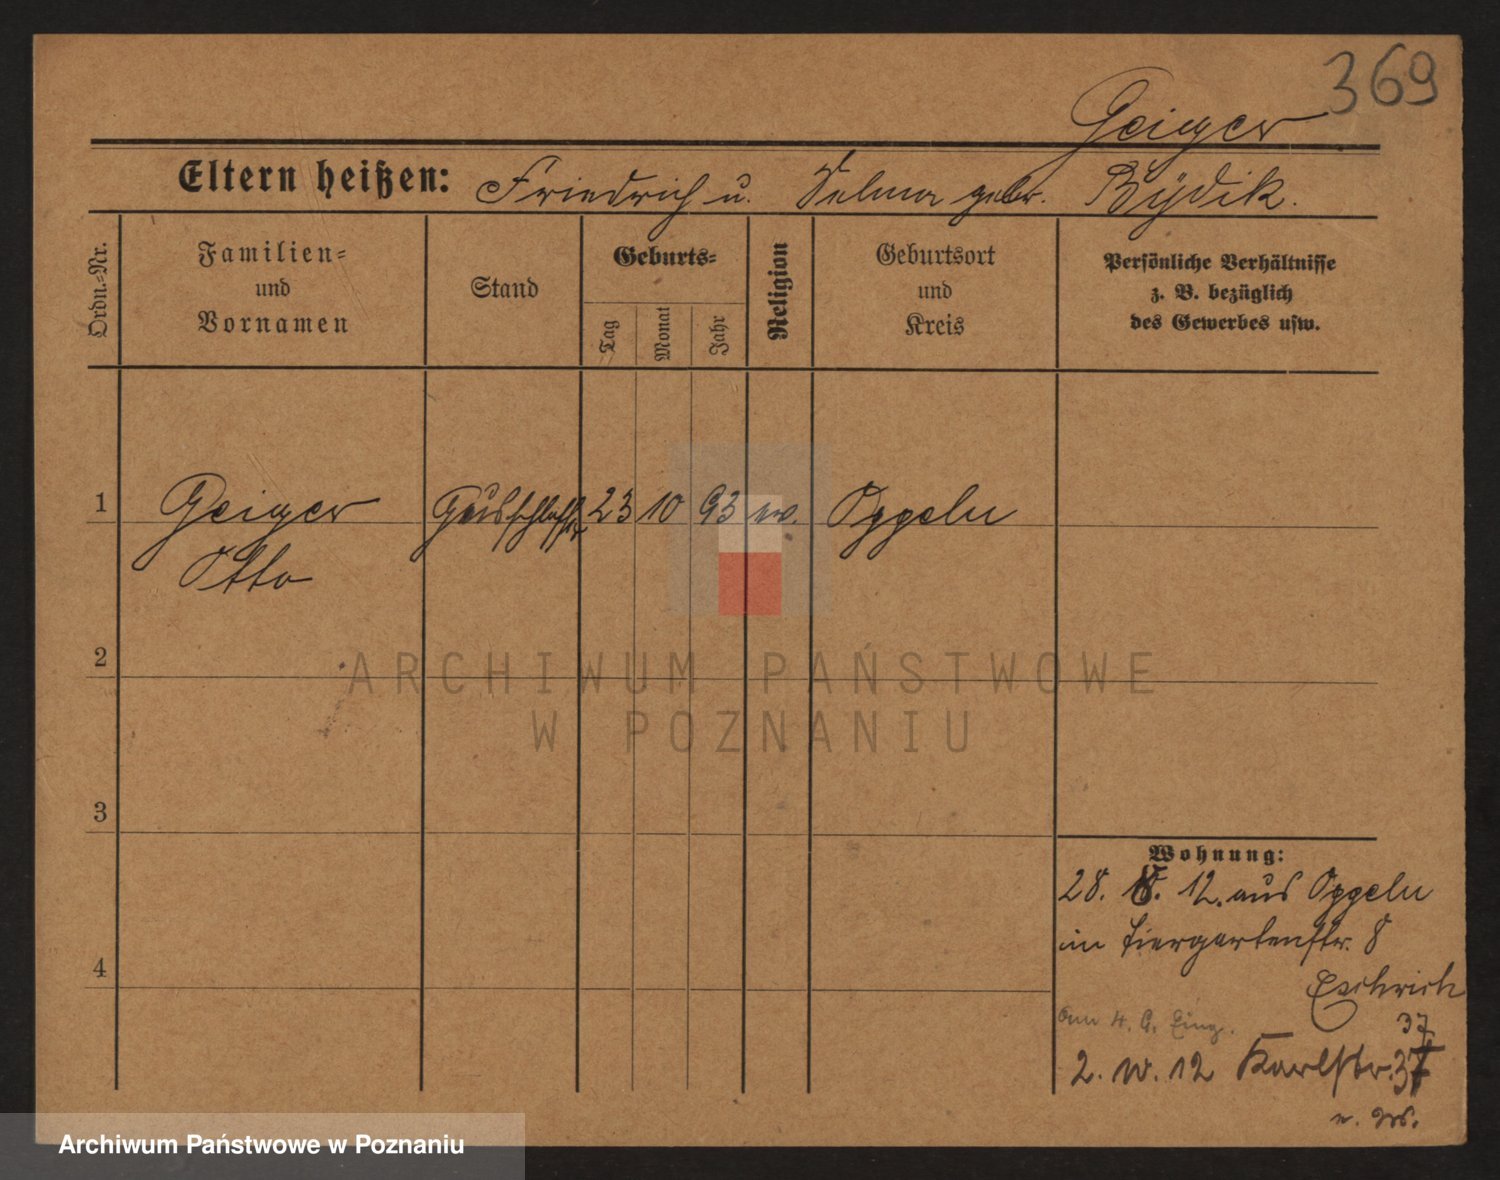 369
Geiger
Eltern heißen: Friedrich u. Selma geb. Bydik.
Ordn.=Nr.
Familien=
und
Vornamen
Stand
Geburts=
Tag
Monat
Jahr
Religion
Geburtsort
und
Kreis
Persönliche Verhältnisse
z. B. bezüglich
des Gewerbes usw.
1 Geiger 23 10 93 ev. Oppeln
Otto
2
ARCHIWUM PAŃSTWOWE
W POZNANIU
3
4
Wohnung:
28. 8. 12. aus Oppeln
in Tiergartenstr. 8
Eschrich
37
2. 10. 12 Karlstr. 37
Archiwum Państwowe w Poznaniu